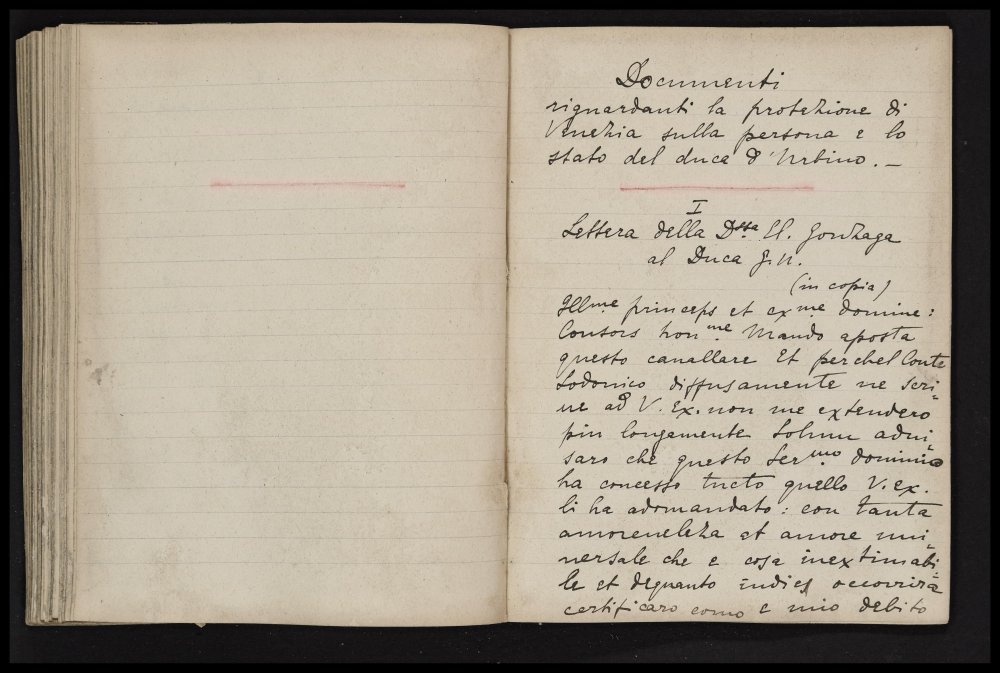 Documenti
riguardanti la protezione di
Venezia sulla persona e lo
stato del duca d'Urbino. —
I
Lettera della Dssa. El. Gonzaga
al Duca f. n.
(in copia)
Illme. princeps et exme. domine:
Consors honme. Mando aposta
questo canallare Et perchel Conte
Lodovico diffusamente ne scri=
ue ad V. Ex. non me extendero
piu longamente Solum adui=
saro che questo Sermo. dominio
ha concesso tucto quello V. ex.
li ha adomandato: con tanta
amoreueleza et amore uni=
uersale che e cosa inextimabi=
le et dequanto indies occorrira
certificaro como e mio debito